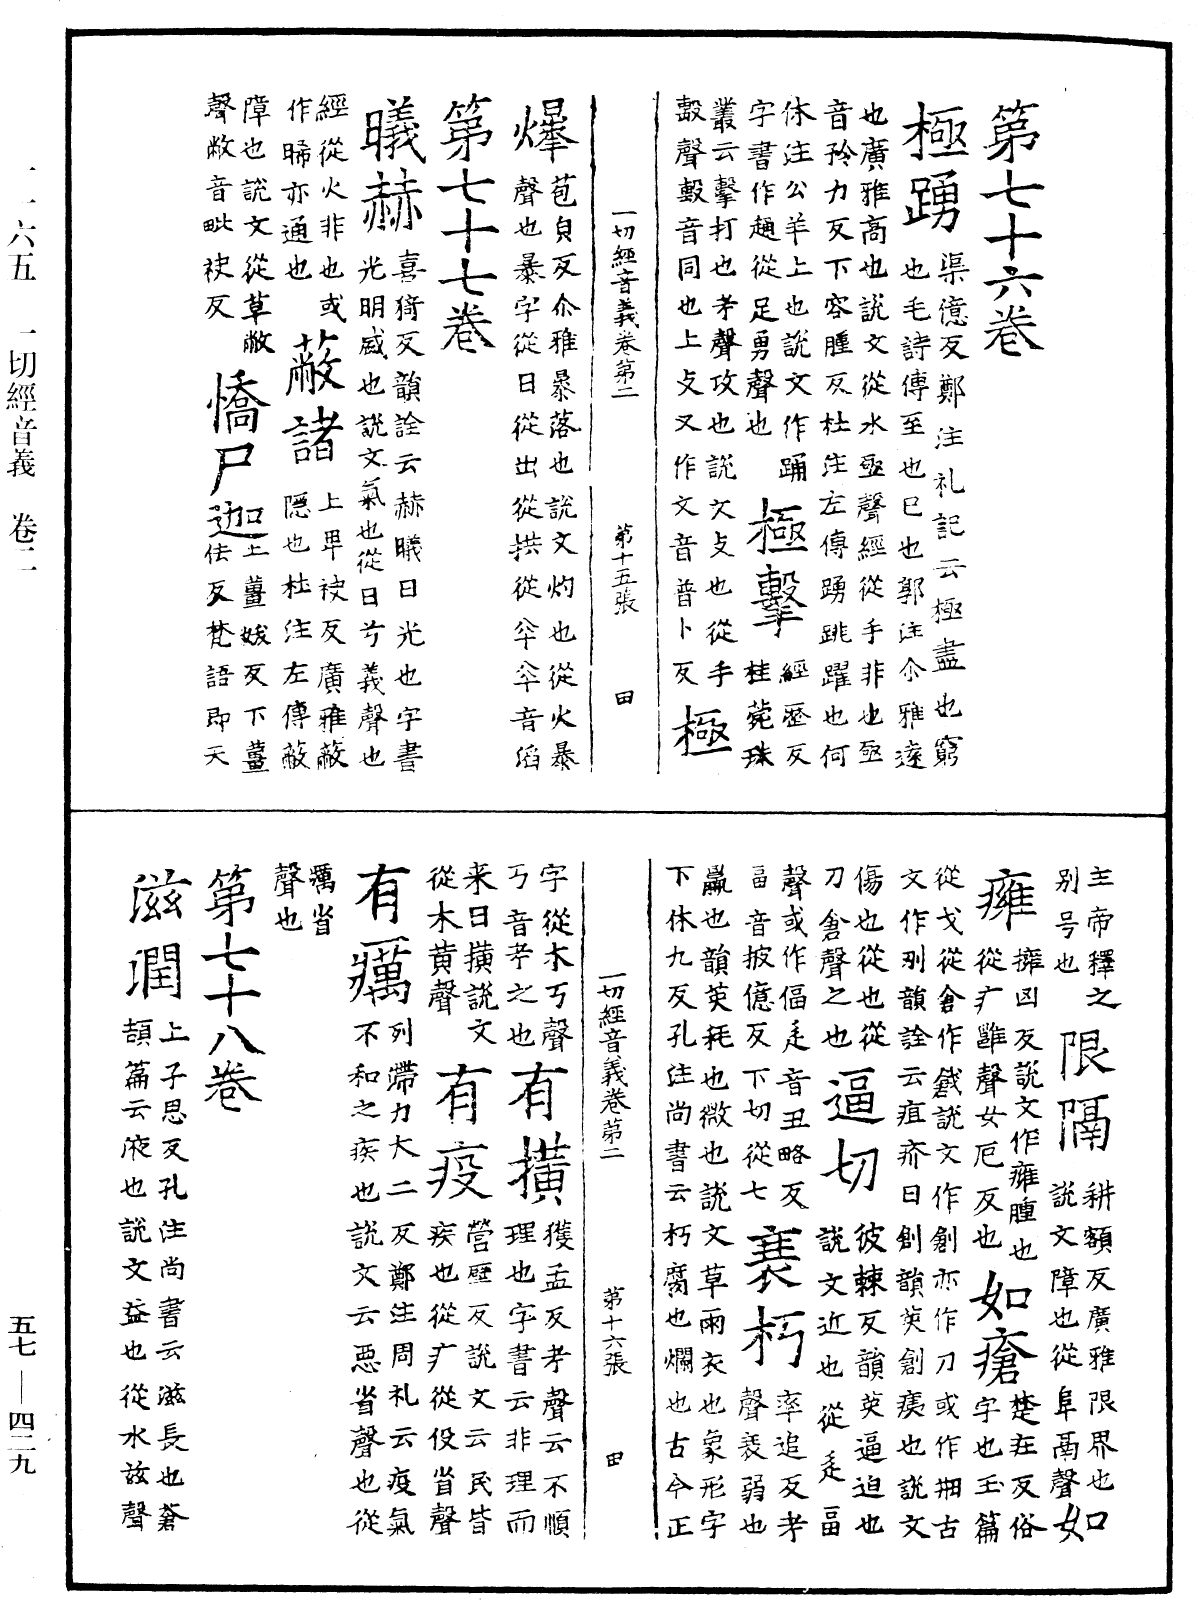 第七十六卷
極踴
渠億反鄭注礼記云極盡也窮
也毛詩傳至也已也郭注尒雅遠
也廣雅高也說文從水亟聲經從手非也亟
音矜力反下容腫反杜注左傳踴跳躍也何
休注公羊上也說文作踊
字書作趙從足勇聲也
極擊
經歷反
桂莵珠
叢云擊打也考聲攻也說文攴也從手
毄聲毄音同也上攴又作文音普卜反
極
一切經音義卷第二 第十五張 田
爆
苞皃反尒雅暴落也說文灼也從火暴
聲也暴字從日從出從拱從夲夲音滔
第七十七卷
曦赫
喜猗反韻詮云赫曦日光也字書
光明盛也說文氣也從日兮義聲也
經從火非也或
作晞亦通也
蔽諸
上卑袂反廣雅蔽
隱也杜注左傳蔽
障也說文從草敝
聲敝音毗袂反
憍尸迦
上薑妖反下薑
佉反梵語即天
主帝釋之
別号也
限隔
耕額反廣雅限界也
說文障也從阜鬲聲
如
癰
擁凶反說文作癰腫也
從疒雝聲女厄反也
如瘡
楚莊反俗
字也玉篇
從戈從倉作戧說文作創亦作刀或作刱古
文作刅韻詮云疽疥曰創韻英創痍也說文
傷也從也從
刀倉聲之也
逼切
彼棘反韻英逼迫也
說文近也從辵畐
聲或作偪辵音丑略反
畐音披億反下切從七
衰朽
率追反考
聲衰弱也
羸也韻英耗也微也說文草雨衣也象形字
下休九反孔注尚書云朽腐也爛也古今正
一切經音義卷第二 第十六張 田
字從木丂聲
丂音考之也
有橫
獲孟反考聲云不順
理也字書云非理而
来曰橫說文
從木黄聲
有疫
營壁反說文云民皆
疾也從疒從役省聲
有癘
列滯力大二反鄭注周礼云疫氣
不和之疾也說文云惡省聲也從
癘省
聲也
第七十八卷
滋潤
上子思反孔注尚書云滋長也蒼
頡篇云液也說文益也從水茲聲
一一六五 一切經音義 卷二
五七—四二九